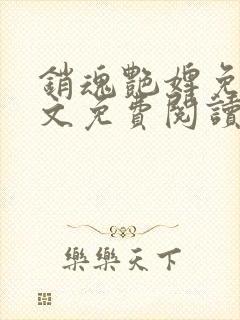 銷魂艷婢免
文免費閱讀
樂樂天下